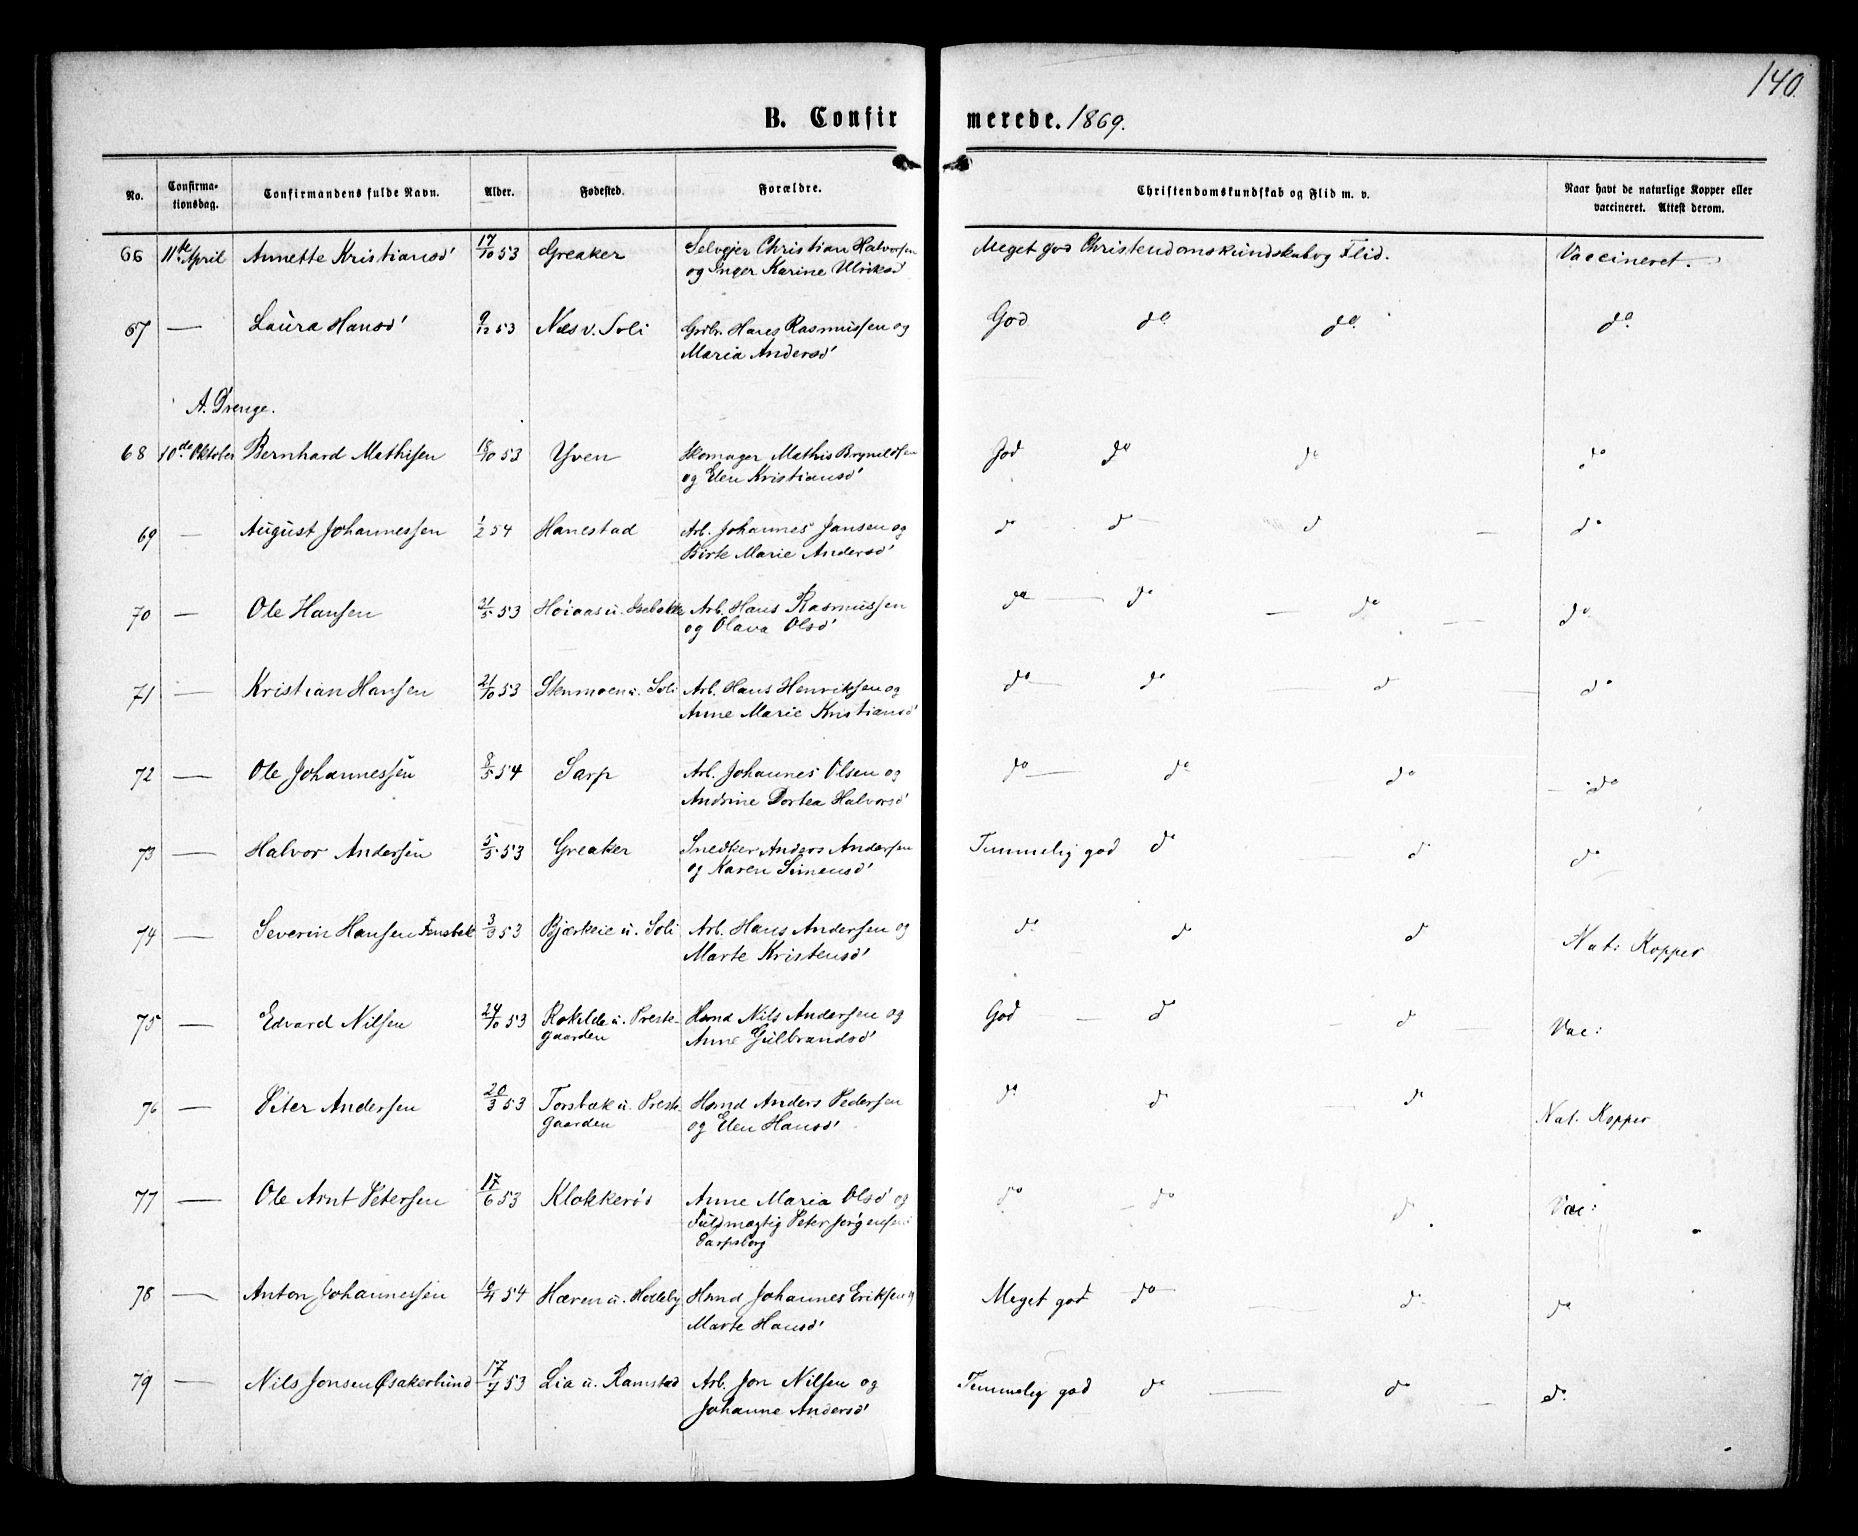 140.
B. Confirmerede. 1869.
No. Confirmationsdag. Confirmandens fulde Navn. Alder. Fødested. Forældre. Christendomskundskab og Flid m. v. Naar havt de naturlige Kopper eller vaccineret. Attest derom.
66 11te April Annette Kristiansd' 17/10 53 Greaker Selvejer Christian Halvorsen Meget god Christendomskundskab og Flid. Vaccineret.
og Inger Karine Ulriksd'
67 — Laura Hansd' 9/12 53 Næs v. Soli Grdbr. Hans Rasmussen og God do do do
Maria Andersd'
A. Drenge.
68 10de Oktober Bernhard Mathisen 18/10 53 Yven Skomager Mathis Brynildsen God do do do
og Elen Kristiansd'
69 — August Johannessen 1/2 54 Hanestad Arb. Johannes Jansen og do do do do
Birte Marie Andersd'
70 — Ole Hansen 21/5 53 Høiaas u. Isebakke Arb. Hans Rasmussen do do do do
og Olava Olsd'
71 — Kristian Hansen 21/10 53 Stenmoen u. Soli Arb. Hans Henriksen og do do do do
Anne Marie Kristiansd'
72 — Ole Johannessen 8/5 54 Sarp Arb. Johannes Olsen og do do do do
Andrine Dortea Halvorsd'
73 — Halvor Andersen 5/5 53 Greaker Snedker Anders Andersen Temmelig god do do do
og Karen Simensd'
74 — Severin Hansen 3/3 53 Bjærkeie u. Soli Arb. Hans Andersen og do do do Nat: Kopper
Marte Kristensd'
75 — Edvard Nilsen 24/10 53 Rokilde u. Preste- Hsmd Nils Andersen og God do do Vac:
gaarden Anne Gulbrandsd'
76 — Peter Andersen 20/3 53 Torsbæk u. Preste- Hsmd Anders Pedersen do do do Nat. Kopper
gaarden og Elen Hansd'
77 — Ole Arnt Petersen 17/6 53 Klokkerød Anne Maria Olsd' og do do do Vac:
Fuldmægtig Peter Jørgensen
Sarpsborg
78 — Anton Johannessen 10/4 54 Hæren u. Hvideby Hsmd Johannes Eriksen og Meget god do do do
Marte Hansd'
79 — Nils Jonsen Øsakerlund 17/7 53 Lia u. Ramstad Arb. Jon Nilsen og Temmelig god do do do
Johanne Andersd'